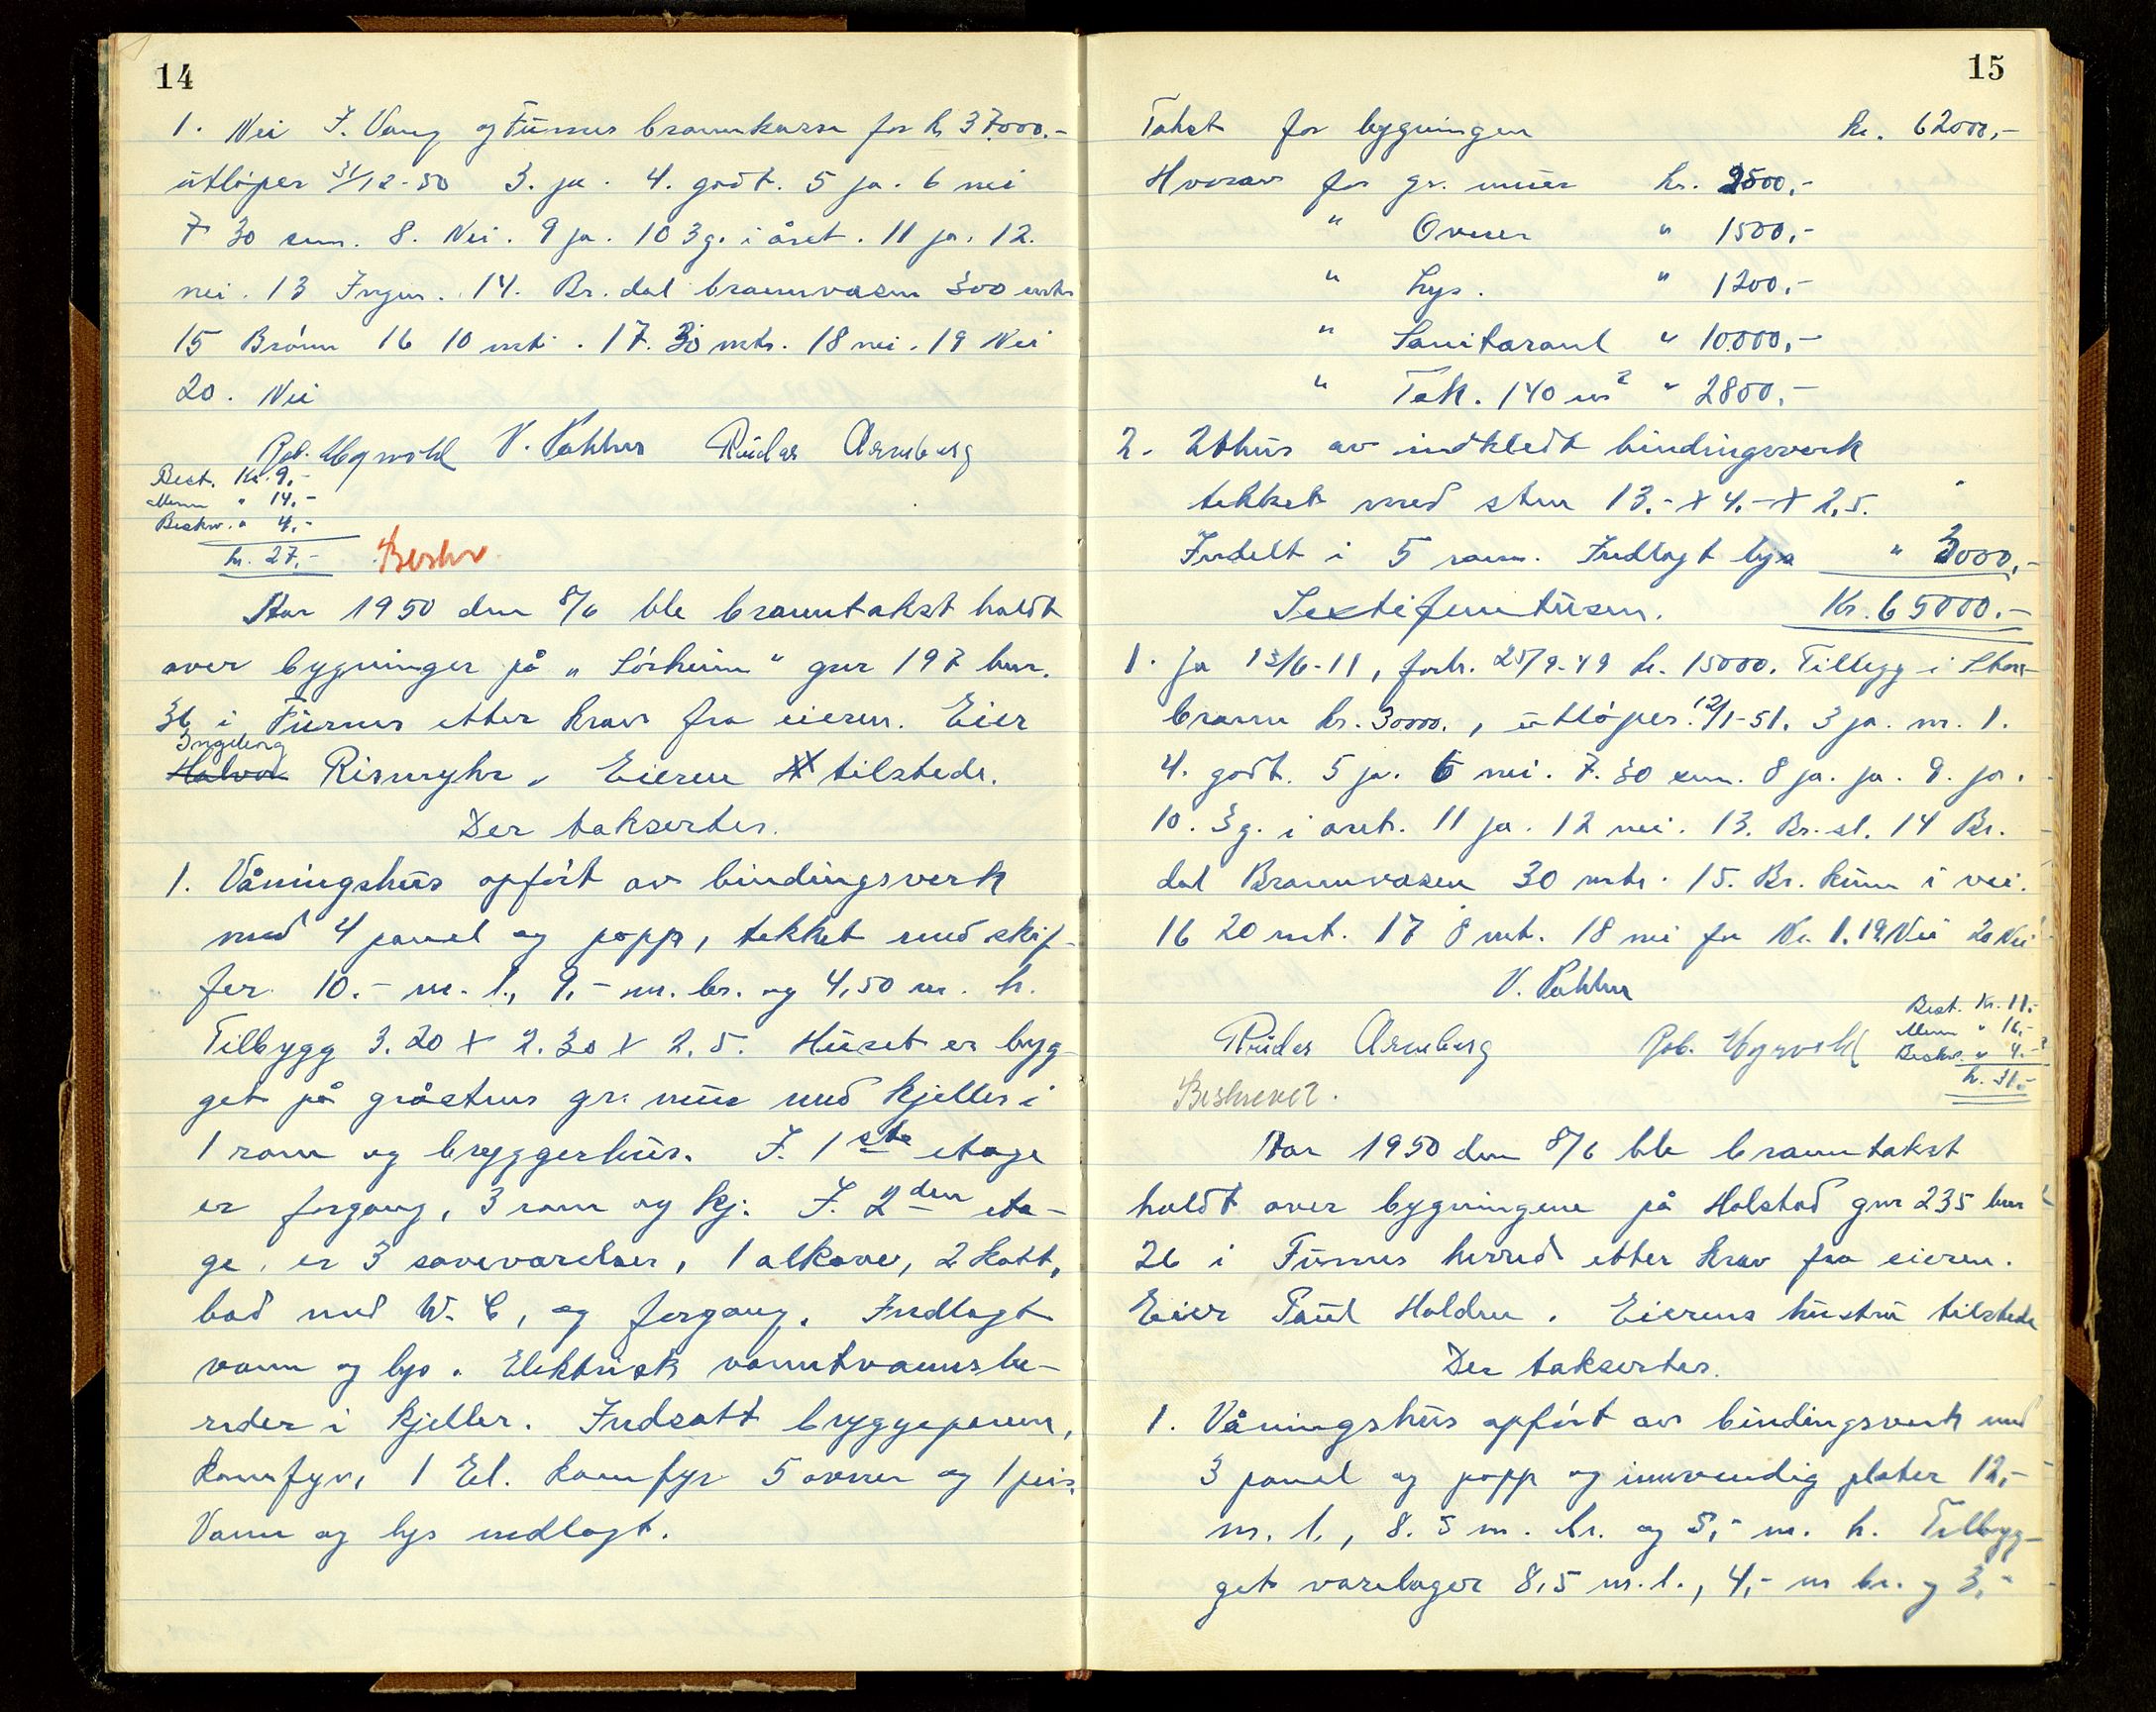 14
1. Nei I. Vang og Furnes brannkasse for kr 37.000.-
utløper 31/12-50 3. ja. 4. godt. 5 ja. 6 nei
7 30 cm. 8. Nei. 9 ja. 10 3 g. i året. 11 ja. 12.
nei. 13 Ingen. 14. Br.dal brannvesen 300 mtr
15 Brønn 16 10 mt. 17. 30 mtr. 18 nei. 19 Nei
20. Nei
Rob. Myrvold V. Rudar Armberg
Best. Kr. 9,-
Menn " 14,-
Beskr. " 4,-
kr. 27,- Beskr.
Aar 1950 den 8/6 ble branntakst holdt
over bygninger på "Sørheim" gnr 197 bnr.
36 i Furnes etter krav fra eieren. Eier
Ingeborg
Halvor Rismyhr. Eieren tilstede.
Der taksertes.
1. Våningshus opført av bindingsverk
med 4 panel og papp, tekket med skif-
fer 10.- m. l., 9,- m. br. og 4,50 m. h.
Tilbygg 3.20 x 2.30 x 2,5. Huset er byg-
get på gråstens gr. mur med kjeller i
1 rom og bryggerhus. I. 1ste etage
er forgang, 3 rom og kj. I. 2den eta-
ge er 3 soveværelser, 1 alkove, 2 kott,
bad med W.C, og forgang. Indlagt
vann og lys. Elektrisk varmtvannsbe-
reder i kjeller. Indsatt bryggepanne,
komfyr, 1 El. komfyr 5 ovner og 1 peis.
Vann og lys indlagt.
15
Takst for bygningen kr. 62000,-
Hvorav for gr. muer kr. 2500,-
" Ovner " 1500,-
" Lys. " 1200,-
" Sanitæranl " 10.000,-
" Tak. 140 m2 " 2800,-
2. Uthus av indkledt bindingsverk
tekket med sten 13.- x 4.- x 2,5.
Indelt i 5 rom. Indlagt lys " 3000,-
Sextifemtusen. Kr. 65000.-
1. Ja 13/6-11, forh. 25/9-49 kr. 15000. Tillegg i Stor-
brann kr. 30000., utløper 12/1-51. 3 ja. nr. 1.
4. godt. 5 ja. 6 nei. 7. 30 cm. 8 ja. ja. 9. ja.
10. 3 g. i aret. 11 ja. 12 nei. 13. Br.sl. 14 Br.
dal Brannvesen 30 mtr. 15. Br. kum i vei.
16 20 mt. 17 8 mt. 18 nei for Nr. 1. 19. Nei 20 Nei
V.
Rudar Armberg Rob. Myrvold
Best. Kr. 11,-
Menn " 16,-
Beskr. " 4.-
kr. 31,-
Beskrevet.
Aar 1950 den 8/6 ble branntakst
holdt over bygningene på Holstad gnr 235 bnr
26 i Furnes herred etter krav fra eieren.
Eier Paul Holdren. Eierens hustru tilstede
Der taksertes.
1. Våningshus opført av bindingsverk med
3 panel og papp og innvendig plater 12,-
m. l., 8.5 m. br. og 5,- m. h. Tilbyg-
get varelager 8,5 m. l., 4,- m br. og 3,-